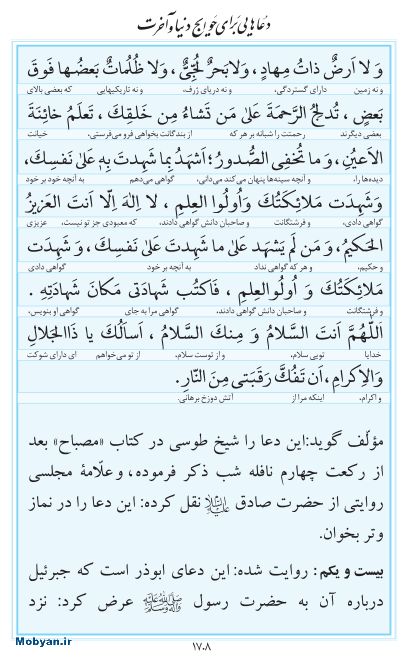 دعاهایی برای حوایج دنیا و آخرت
وَ لا اَرضٌ ذاتُ مِهادٍ، وَلابَحرٌ لُجِّیٌّ، وَلا ظُلُماتٌ بَعضُها فَوقَ
و نه زمین دارای گستردگی، و نه دریای ژرف، و نه تاریکیهایی که بعضی بالای
بَعضٍ ، تُدلِجُ الرَّحمَةَ عَلىٰ مَن تَشاءُ مِن خَلقِكَ ، تَعلَمُ خائِنَةَ
بعضی دیگرند رحمتت را شبانه بر هر که از بندگانت بخواهی فرو می‌فرستی، خیانت
الاَعیُنِ، وَ ما تُخفِى الصُّدورُ؛ اَشهَدُ بِما شَهِدتَ بِهِ عَلىٰ نَفسِكَ،
دیده‌ها را، و آنچه سینه‌ها پنهان می‌کند می‌دانی، گواهی می‌دهم به آنچه خود بر خود
وَشَهِدَت مَلائِکَتُكَ وَاُولُوا العِلمِ ، لا اِلٰهَ اِلّا اَنتَ العَزیزُ
گواهی دادی، و فرشتگانت و صاحبان دانش گواهی دادند، که معبودی جز تو نیست، عزیزی
الحَکیمُ، وَ مَن لَم یَشهَد عَلىٰ ما شَهِدتَ عَلىٰ نَفسِكَ، وَ شَهِدَت
و حکیم، و هر که گواهی نداد به آنچه بر خود گواهی دادی
مَلائِکَتُكَ وَ اُولُواالعِلمِ ، فَاکتُب شَهادَتى مَکانَ شَهادَتِهِ .
و فرشتگانت و صاحبان دانش گواهی دادند، گواهی مرا به جای گواهی او بنویس،
اَللّٰهُمَّ اَنتَ السَّلامُ وَ مِنكَ السَّلامُ ، اَسأَلُكَ یا ذَاالجَلالِ
خدایا تویی سلام، و از توست سلام، از تو می‌خواهم ای دارای شوکت
وَالاِکرامِ، اَن تَفُكَّ رَقَبَتى مِنَ النّارِ.
و اکرام، اینکه مرا از آتش دوزخ برهانی.
مؤلّف گوید:این دعا را شیخ طوسی در کتاب «مصباح» بعد
از رکعت چهارم نافله شب ذکر فرموده، و علّامهٔ مجلسی
روایتی از حضرت صادق علیه‌السلام نقل کرده: این دعا را در نماز
وتر بخوان.
بیست و یکم: روایت شده: این دعای ابوذر است که جبرئیل
درباره آن به حضرت رسول صلی الله علیه وآله وسلم عرض کرد: نزد
۱۷۰۸
Mobyan.ir